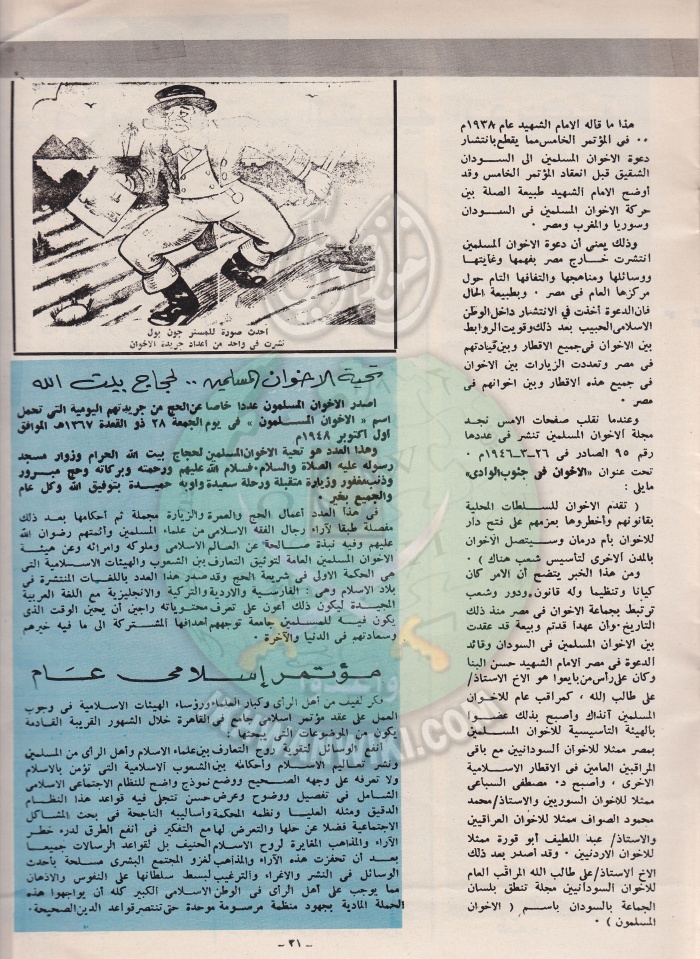 هذا ما قاله الامام الشهيد عام ١٩٣٨م
٠٠ فى المؤتمر الخامس مما يقطع بانتشار
دعوة الاخوان المسلمين الى السودان
الشقيق قبل انعقاد المؤتمر الخامس وقد
أوضح الامام الشهيد طبيعة الصلة بين
حركة الاخوان المسلمين فى السودان
وسوريا والمغرب ومصر ٠
وذلك يعنى أن دعوة الاخوان المسلمين
انتشرت خارج مصر بفهمها وغايتها
ووسائلها ومناهجها والتفافها التام حول
مركزها العام فى مصر ٠ وبطبيعة الحال
فان الدعوة أخذت فى الانتشار داخل الوطن
الاسلامى الحبيب بعد ذلك وقويت الروابط
بين الاخوان فى جميع الاقطار وبين قيادتهم
فى مصر وتعددت الزيارات بين الاخوان
فى جميع هذه الاقطار وبين اخوانهم فى
مصر ٠
وعندما نقلب صفحات الامس نجد
مجلة الاخوان المسلمين تنشر فى عددها
رقم ٩٥ الصادر فى ٢٦-٣-١٩٤٦م ٠
تحت عنوان «الاخوان فى جنوب الوادى»
مايلى :
( تقدم الاخوان للسلطات المحلية
بقانونهم وأخطروها بعزمهم على فتح دار
للاخوان بأم درمان وسيتصل الاخوان
بالمدن الاخرى لتأسيس شعب هناك ) ٠
ومن هذا الخبر يتضح أن الامر كان
كيانا وتنظيما وله قانون ودور وشعب
ترتبط بجماعة الاخوان فى مصر منذ ذلك
التاريخ ٠ وأن عهدا قدتم وبيعة قد عقدت
بين الاخوان المسلمين فى السودان وقائد
الدعوة فى مصر الامام الشهيد حسن البنا
وكان على رأس من بايعوا هو الاخ الاستاذ/
على طالب الله ، كمراقب عام للاخوان
المسلمين آنذاك وأصبح بذلك عضوا
بالهيئة التأسيسية للاخوان المسلمين
بمصر ممثلا للاخوان السودانيين مع باقى
المراقبين العامين فى الاقطار الاسلامية
الاخرى ، وأصبح د٠ مصطفى السباعى
ممثلا للاخوان السوريين والاستاذ/محمد
محمود الصواف ممثلا للاخوان العراقيين
والاستاذ/ عبد اللطيف أبو قورة ممثلا
للاخوان الاردنيين ٠ وقد أصدر بعد ذلك
الاخ الاستاذ/على طالب الله المراقب العام
للاخوان السودانيين مجلة تنطق بلسان
الجماعة بالسودان باسم ( الاخوان
المسلمون ) ٠
أحدث صورة للمستر جون بول
نشرت فى واحد من أعداد جريدة الاخوان
تحية الاخوان المسلمين .. لحجاج بيت الله
اصدر الاخوان المسلمون عددا خاصا عن الحج من جريدتهم اليومية التى تحمل
اسم « الاخوان المسلمون » فى يوم الجمعة ٢٨ ذو القعدة ١٣٦٧هـ الموافق
اول اكتوبر ١٩٤٨م
وهذا العدد هو تحية الاخوان المسلمين لحجاج بيت الله الحرام وزوار مسجد
رسوله عليه الصلاة والسلام ٠ فسلام الله عليهم ورحمته وبركاته وحج مبرور
وذنب مغفور وزيارة متقبلة ورحلة سعيدة واوبه حميدة بتوفيق الله وكل عام
والجميع بخير ٠
فى هذا العدد أعمال الحج والعمرة والزيارة مجملة ثم أحكامها بعد ذلك
مفصلة طبقا لآراء رجال الفقه الاسلامى من علماء المسلمين وأئمتهم رضوان الله
عليهم وفيه نبذة صالحة عن العالم الاسلامى وملوكه وامرائه وعن هيئة
الاخوان المسلمين العامة لتوثيق التعارف بين الشعوب والهيئات الاسلامية التى
هى الحكمة الاولى فى شريعة الحج وقد صدر هذا العدد باللغات المنتشرة فى
بلاد الاسلام وهى : الفارسية والاردية والتركية والانجليزية مع اللغة العربية
المجيدة ليكون ذلك أعون على تعرف محتوياته راجين أن يحين الوقت الذى
يكون فيه للمسلمين جامعة توجههم أهدافها المشتركة الى ما فيه خيرهم
وسعادتهم فى الدنيا والآخرة ٠
مؤتمر إسلامى عام
فكر لفيف من أهل الرأى وكبار العلماء ورؤساء الهيئات الاسلامية فى وجوب
العمل على عقد مؤتمر اسلامى جامع فى القاهرة خلال الشهور القريبة القادمة
يكون من الموضوعات التى يبحثها :
أنفع الوسائل لتقوية روح التعارف بين علماء الاسلام وأهل الرأى من المسلمين
ونشر تعاليم الاسلام وأحكامه بين الشعوب الاسلامية التى تؤمن بالاسلام
ولا تعرفه على وجهه الصحيح ووضع نموذج واضح للنظام الاجتماعى الاسلامى
الشامل فى تفصيل ووضوح وعرض حسن تتجلى فيه قواعد هذا النظام
الدقيق ومثله العليا ونظمه المحكمة وأساليبه الناجحة فى بحث المشاكل
الاجتماعية فضلا عن حلها والتعرض لها مع التفكير فى أنفع الطرق لدرء خطر
الآراء والمذاهب المغايرة لروح الاسلام الحنيف بل لقواعد الرسالات جميعا
بعد أن تحفزت هذه الآراء والمذاهب لغزو المجتمع البشرى مسلحة بأحدث
الوسائل فى النشر والاغراء والترغيب لبسط سلطانها على النفوس والاذهان
مما يوجب على أهل الرأى فى الوطن الاسلامى الكبير كله أن يواجهوا هذه
الحملة المادية بجهود منظمة مرسومة موحدة حتى تنتصر قواعد الدين الصحيحة٠
- ٣١ -